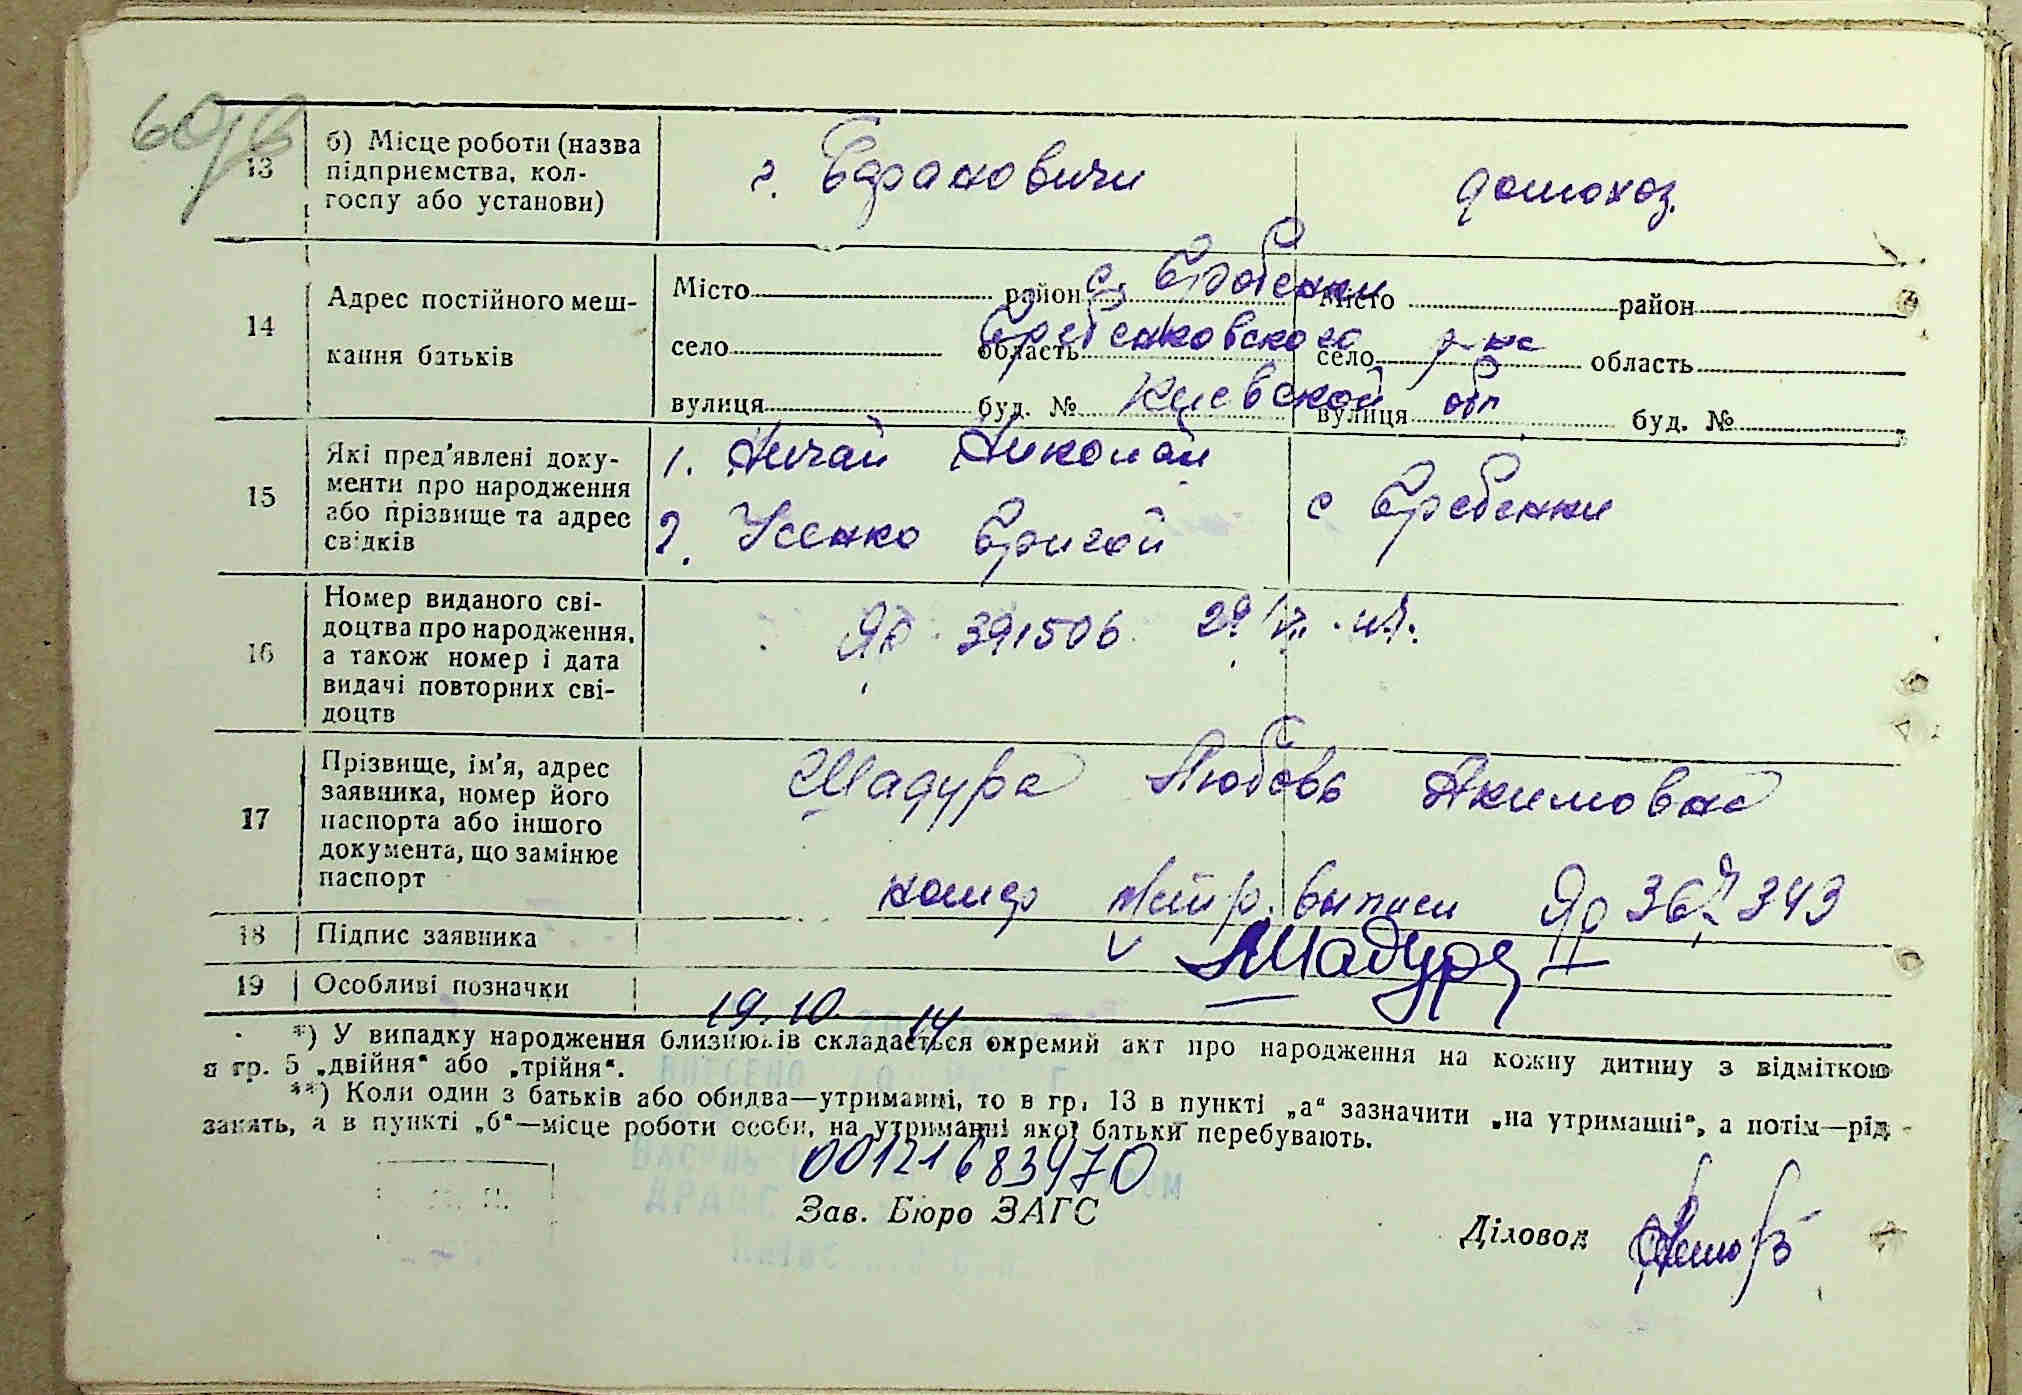 60
13
б) Місце роботи (назва
підприємства, кол-
госпу або установи)
г. Барановичи
домохоз.
14
Адрес постійного меш-
кання батьків
Місто район с. Гребенки Місто район
село область Гребенковского село р-на область
вулиця буд. № Киевской вулиця обл буд. №
15
Які пред’явлені доку-
менти про народження
або прізвище та адрес
свідків
1. Ничай Николай
2. Усенко Григой
с Гребенки
16
Номер виданого сві-
доцтва про народження,
а також номер і дата
видачі повторних сві-
доцтв
ЯР 391506 29
17
Прізвище, ім’я, адрес
заявника, номер його
паспорта або іншого
документа, що замінює
паспорт
Шадура Любовь Акимовна
номер метр. выписи
18
Підпис заявника
V Шадура
19
Особливі позначки
19.10 14
*) У випадку народження близнюків складається окремий акт про народження на кожну дитину з відміткою
в гр. 5 „двійня“ або „трійня“.
**) Коли один з батьків або обидва—утриманні, то в гр. 13 в пункті „а“ зазначити „на утриманні“, а потім—рід
занять, а в пункті „б“—місце роботи особи, на утриманні якої батьки перебувають.
00121683970
Зав. Бюро ЗАГС
Діловод